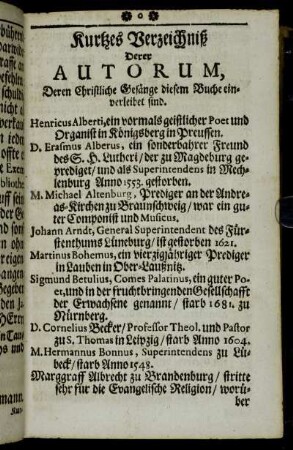 Kurtzes Verzeichniß
Derer
AUTORUM,
Deren Christliche Gesänge diesem Buche ein-
verleibet sind.
Henricus Alberti, ein vormals geistlicher Poet und
Organist in Königsberg in Preussen.
D. Erasmus Alberus, ein sonderbahrer Freund
des S. H. Lutheri / der zu Magdeburg ge-
prediget / und als Superintendens in Mech-
lenburg Anno 1553. gestorben.
M. Michael Altenburg, Prediger an der Andre-
as-Kirchen zu Braunschweig / war ein gu-
ter Componist und Musicus.
Johann Arndt, General Superintendent des Für-
stenthums Lüneburg / ist gestorben 1621.
Martinus Bohemus, ein vierzigjähriger Prediger
in Lauben in Ober-Laußnitz.
Sigmund Betulius, Comes Palatinus, ein guter Po-
et, und in der fruchtbringenden Gesellschafft
der Erwachsene genannt / starb 1681. zu
Nürnberg.
D. Cornelius Becker / Professor Theol. und Pastor
zu S. Thomas in Leipzig / starb Anno 1604.
M. Hermannus Bonnus, Superintendens zu Lü-
beck / starb Anno 1548.
Marggraff Albrecht zu Brandenburg / stritte
sehr für die Evangelische Religion / worü-
ber